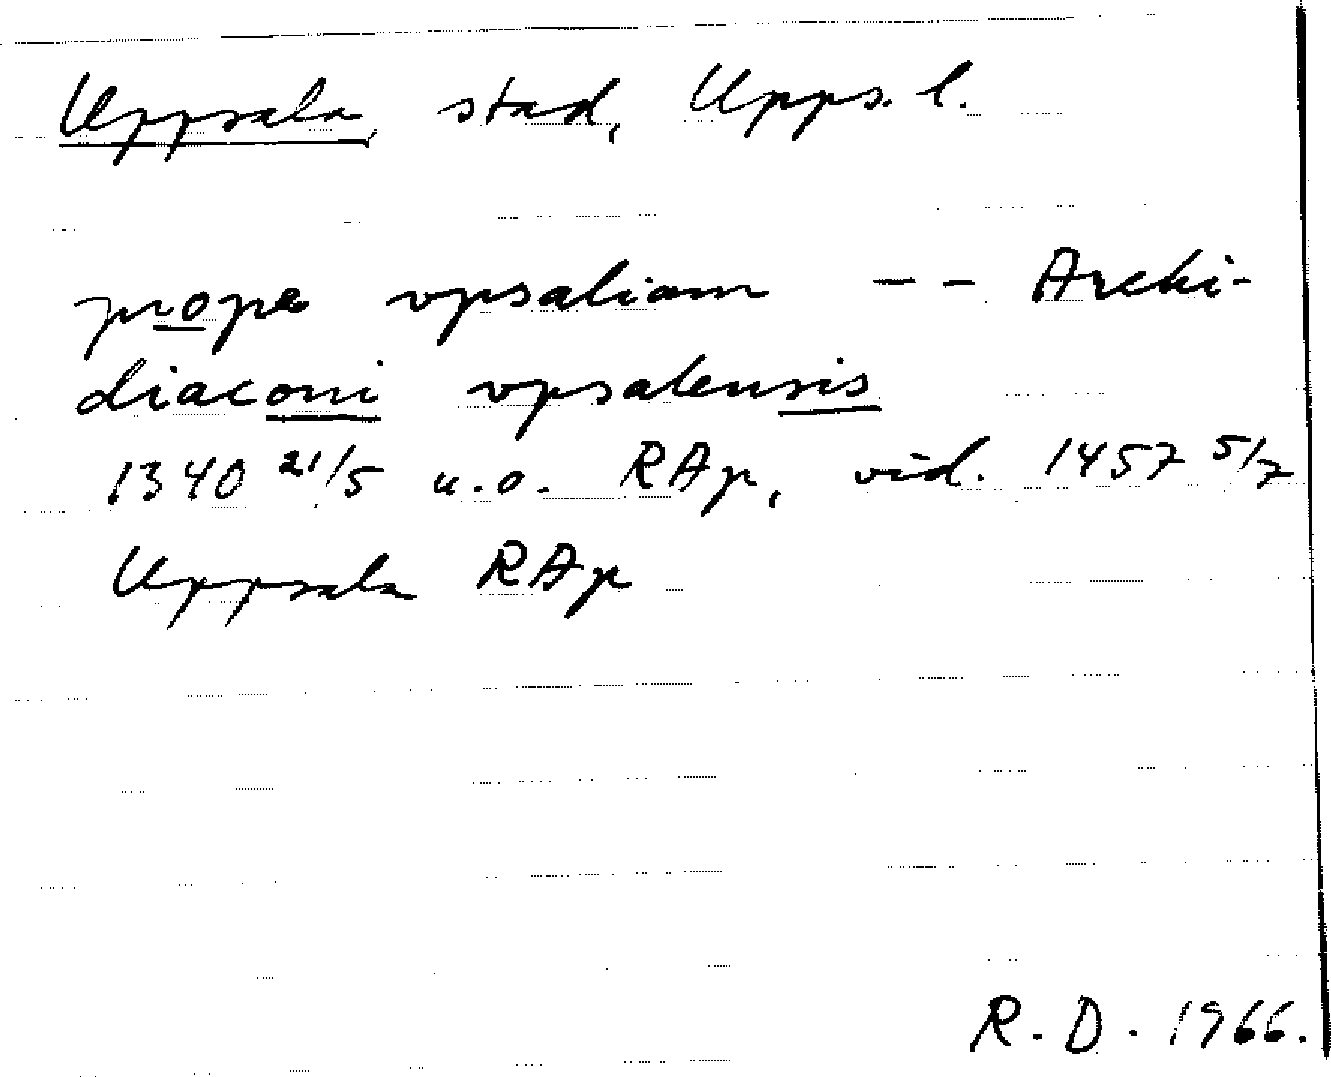 Uppsala, stad, Upps. l.
prope vpsaliam -- Archi-
diaconi vpsalensis
1340 21/5 u.o. RAp, vid. 1457 5/7
Uppsala RAp
R. D. 1966.